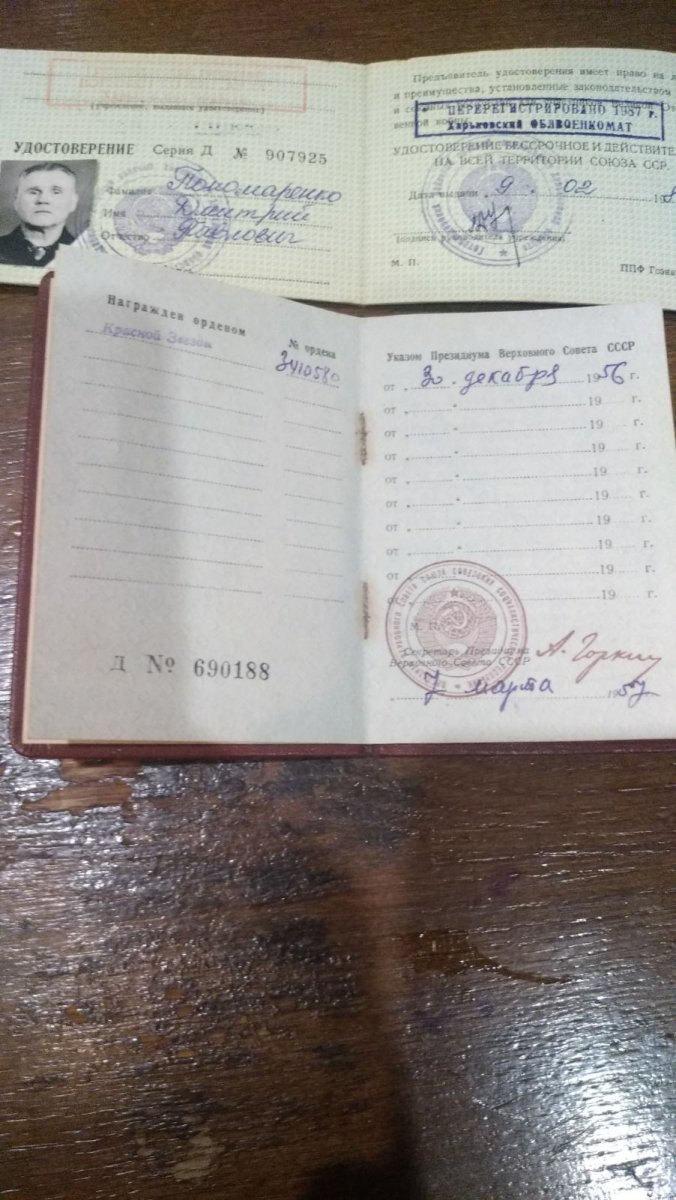 (учреждение, выдавшее удостоверение)
УДОСТОВЕРЕНИЕ Серия Д № 907925
Фамилия Пономаренко
Имя Дмитрий
Отчество Павлович
Предъявитель удостоверения имеет право на
и преимущества, установленные законодательством
венной войны
ПЕРЕРЕГИСТРИРОВАНО 1987 г.
Харьковский ОБЛВОЕНКОМАТ
УДОСТОВЕРЕНИЕ БЕССРОЧНОЕ И ДЕЙСТВИТЕ
НА ВСЕЙ ТЕРРИТОРИИ СОЮЗА ССР.
Дата выдачи 9. 02 198
(подпись руководителя учреждения)
М. П.
ППФ Гозна
Награжден орденом № ордена
Красной Звезды 3410580
Д № 690188
Указом Президиума Верховного Совета СССР
от „ 30 " декабря 1956 г.
от „ " 19 г.
от „ " 19 г.
от „ " 19 г.
от „ " 19 г.
от „ " 19 г.
от „ " 19 г.
от „ " 19 г.
от „ 19 г.
19 г.
М. П.
Секретарь Президиума
Верховного Совета СССР А. Горкин
7 марта 1957